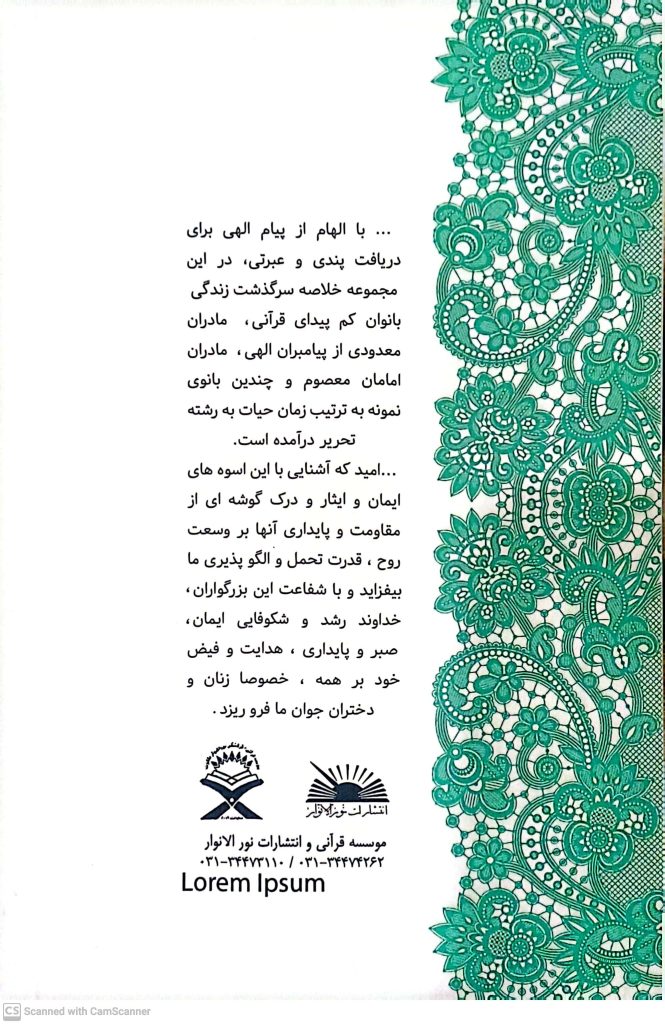 ... با الهام از پیام الهی برای
دریافت پندی و عبرتی، در این
مجموعه خلاصه سرگذشت زندگی
بانوان کم پیدای قرآنی، مادران
معدودی از پیامبران الهی، مادران
امامان معصوم و چندین بانوی
نمونه به ترتیب زمان حیات به رشته
تحریر درآمده است.
...امید که آشنایی با این اسوه های
ایمان و ایثار و درک گوشه ای از
مقاومت و پایداری آنها بر وسعت
روح ، قدرت تحمل و الگو پذیری ما
بیفزاید و با شفاعت این بزرگواران،
خداوند رشد و شکوفایی ایمان،
صبر و پایداری ، هدایت و فیض
خود بر همه ، خصوصا زنان و
دختران جوان ما فرو ریزد.
انتشارات نورالانوار
موسسه قرآنی و انتشارات نور الانوار
۰۳۱-۳۴۴۷۳۱۱۰ / ۰۳۱-۳۴۴۷۴۲۶۲
Lorem Ipsum
CS Scanned with CamScanner